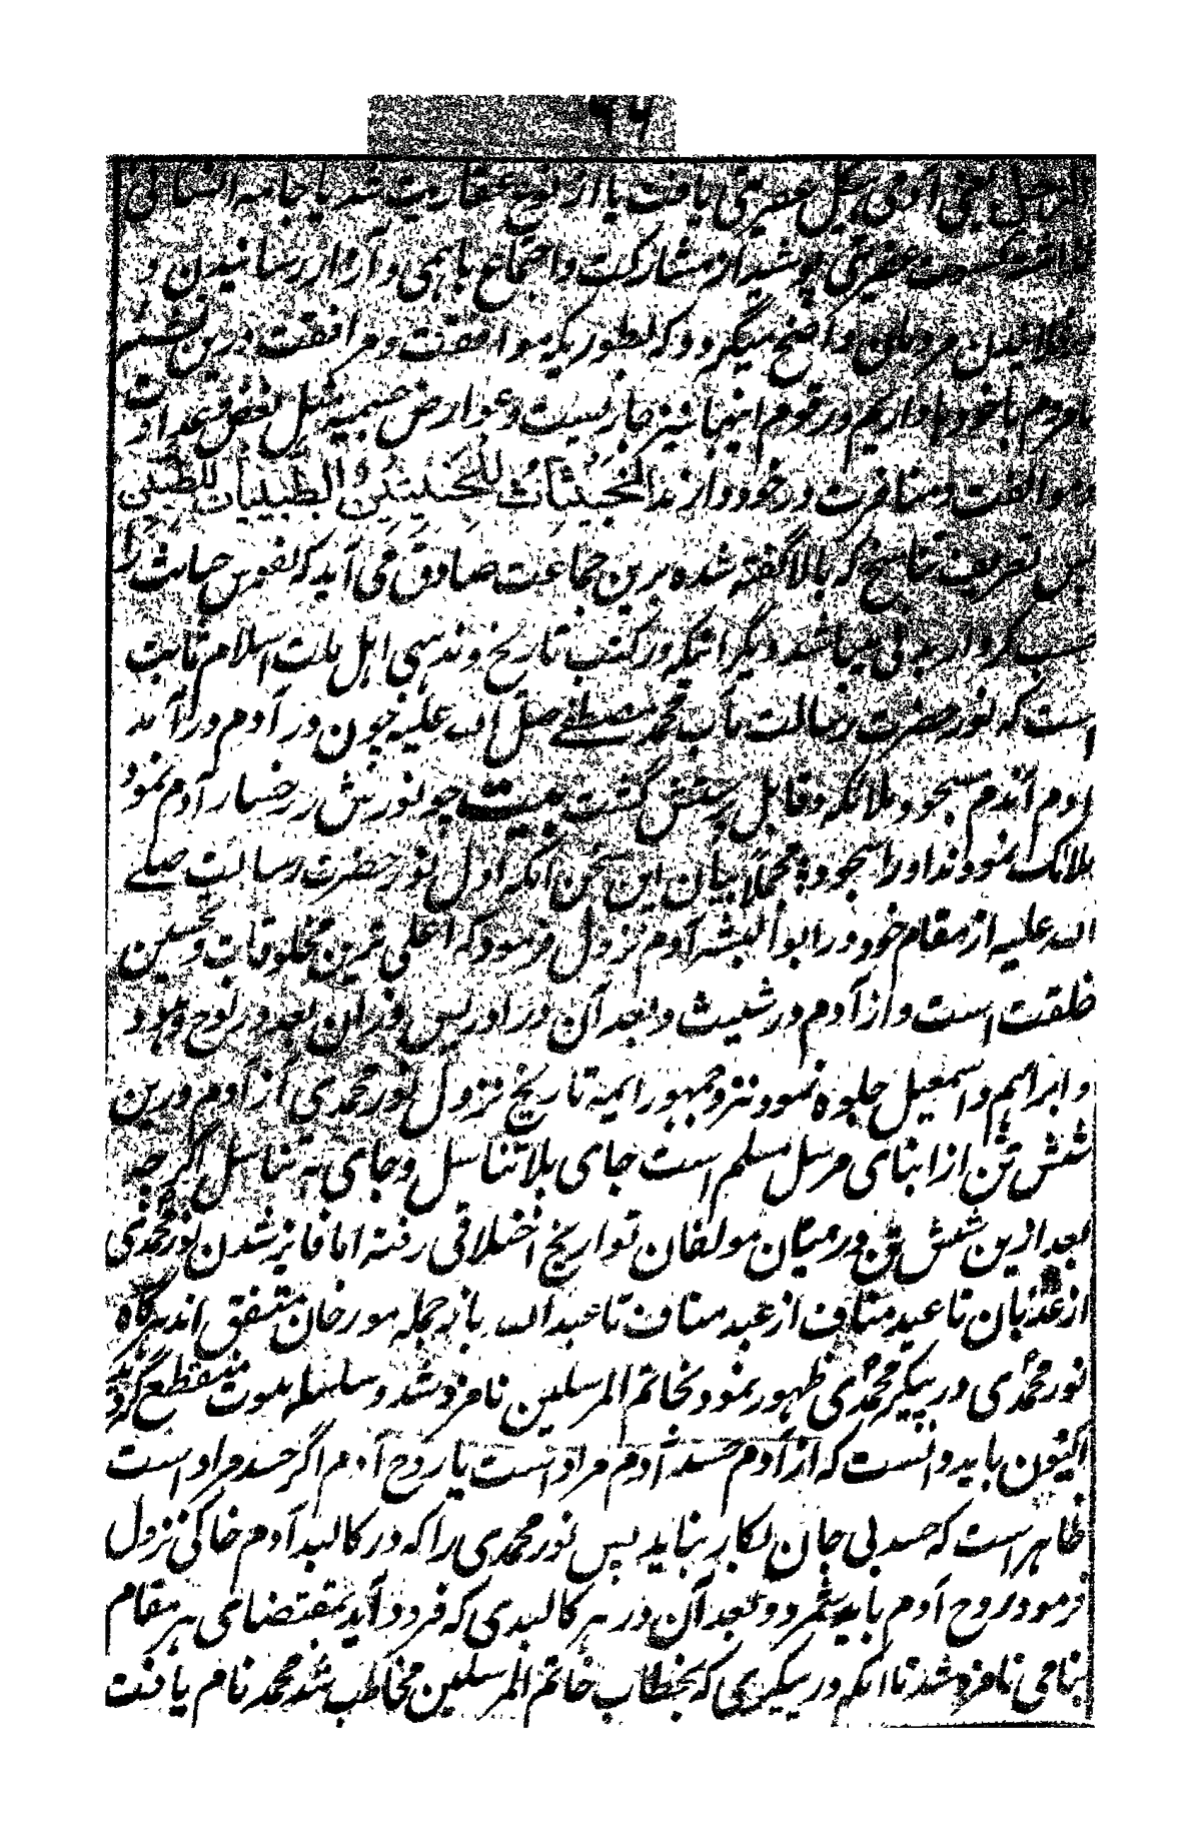 ۹۶
الرجل یعنی آدمی شکل عفریتی یافت یا از نوع عفاریت شد یا جامه انسانی
عفریتی پوشید از مشارکت و اجتماع باهمی و آزار رسانیدن و
مردمان واضح میگردد که بطوریکه موافقت و مرافقت درین نشئه
با مردم با خود ها داریم در قوم اینها نیز جاریست و عوارض جسمیه مثل بغض و عداوت
و موالفت و منافرت در خود دارند الخبیثات للخبیثین والطیبات للطیبین
پس تعریف تناسخ که بالا گفته شده برین جماعت صادق می آید که نفوس خبایث را
حسب کردار بدنی میباشد دیگر آنکه در کتب تاریخ و ندسبی اهل ملت اسلام ثابت
است که نور حضرت رسالت مآب محمد مصطفے صلی الله علیه چون در آدم درآمد
آدم آندم مسجود ملائکه و قابل پرستش گشت بیت چو نورش در رخسار آدم نمود
ملائک نمودند او را سجود ؛ مجملاً بیان این سخن آنکه اول نور حضرت رسالت صلے
الله علیه از مقام خود در ابوالبشر آدم نزول فرمود که اعلی ترین مخلوقات و تحسین
خلقت است و از آدم در شیث و بعد آن در ادریس و زان بعد در نوح و هود
و ابراهیم و اسمعیل جلوه نمود و نزد جمهور ایمه تاریخ نزول نور محمدی از آدم درین
شش تن از انبیای مرسل مسلم است جای بلا تناسل و جای به تناسل اگرچه
بعد ازین شش تن در میان مولفان تواریخ اختلافی رفته اما فایز شدن نور محمدی
از عدنان تا عبد مناف از عبد مناف تا عبد الله باز جمله مورخان متفق اند هرگاه
نور محمدی در پیکر محمدی ظهور نمود بخاتم المرسلین نامزد شد و سلسله نبوت منقطع گردید
اکنون باید دانست که از آدم جسد آدم مراد است یا روح آدم اگر جسد مراد است
ظاهر است که جسد بی جان بکار نیاید پس نور محمدی را که در کالبد آدم خاکی نزول
فرمود روح آدم باید شمرد و بعد آن در هر کالبدی که فرود آید بمقتضای هر مقام
بنامی نامزد شد تا آنکه در پیکری که بخطاب خاتم المرسلین مخاطب شد محمد نام یافت